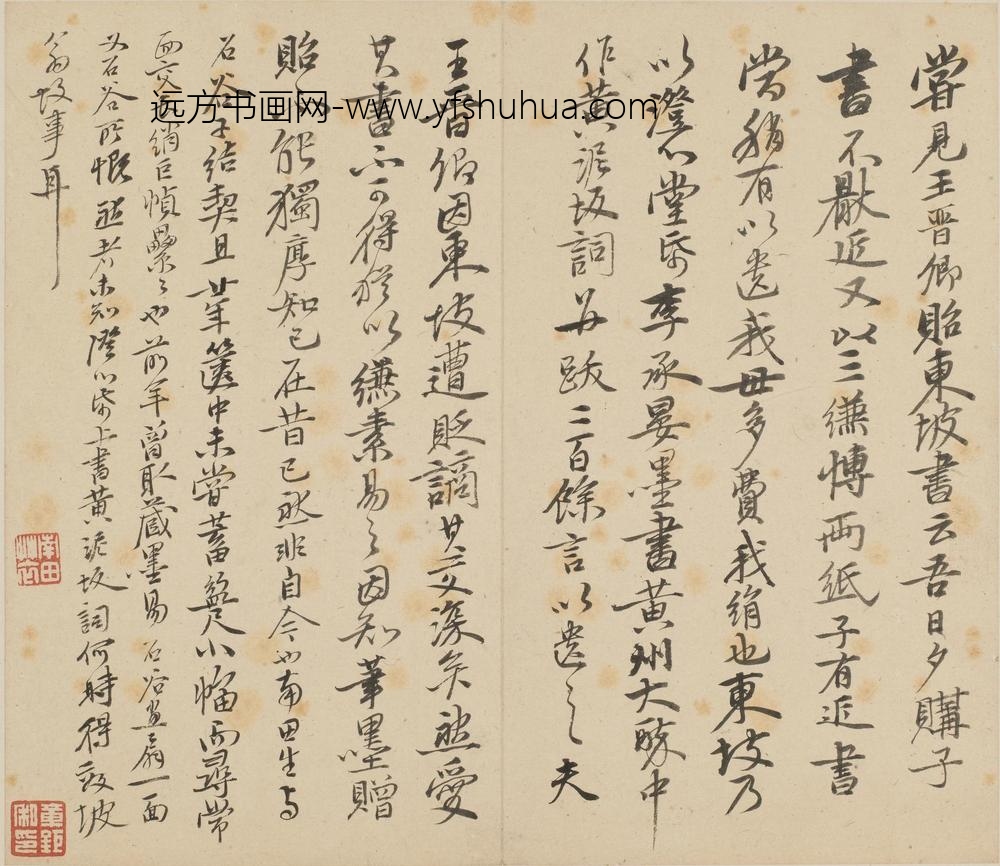 嘗見王晉卿貽東坡書云吾日夕購子
書不厭近又以三縑博兩紙子有近書
當稍有以遺我毋多費我絹也東坡乃
以澄心堂紙李承晏墨書黃州大醉中
作黃泥坂詞并跋二百餘言以遺之夫
王晉卿因東坡遭貶謫其交深矣然愛
其書不可得猶以縑素易之因知筆墨贈
貽不能獨厚知已在昔已然非自今也南田生與
石谷子結契且廿年篋中未嘗蓄盈尺小幅而尋常
面交綃巨幀纍纍也前年曾取藏墨易石谷畫扇一面
又石谷所慨然者未知澄心紙上書黃泥坂詞何時得效坡
翁故事耳
南田
遠方书画网-www.yfshuhua.com